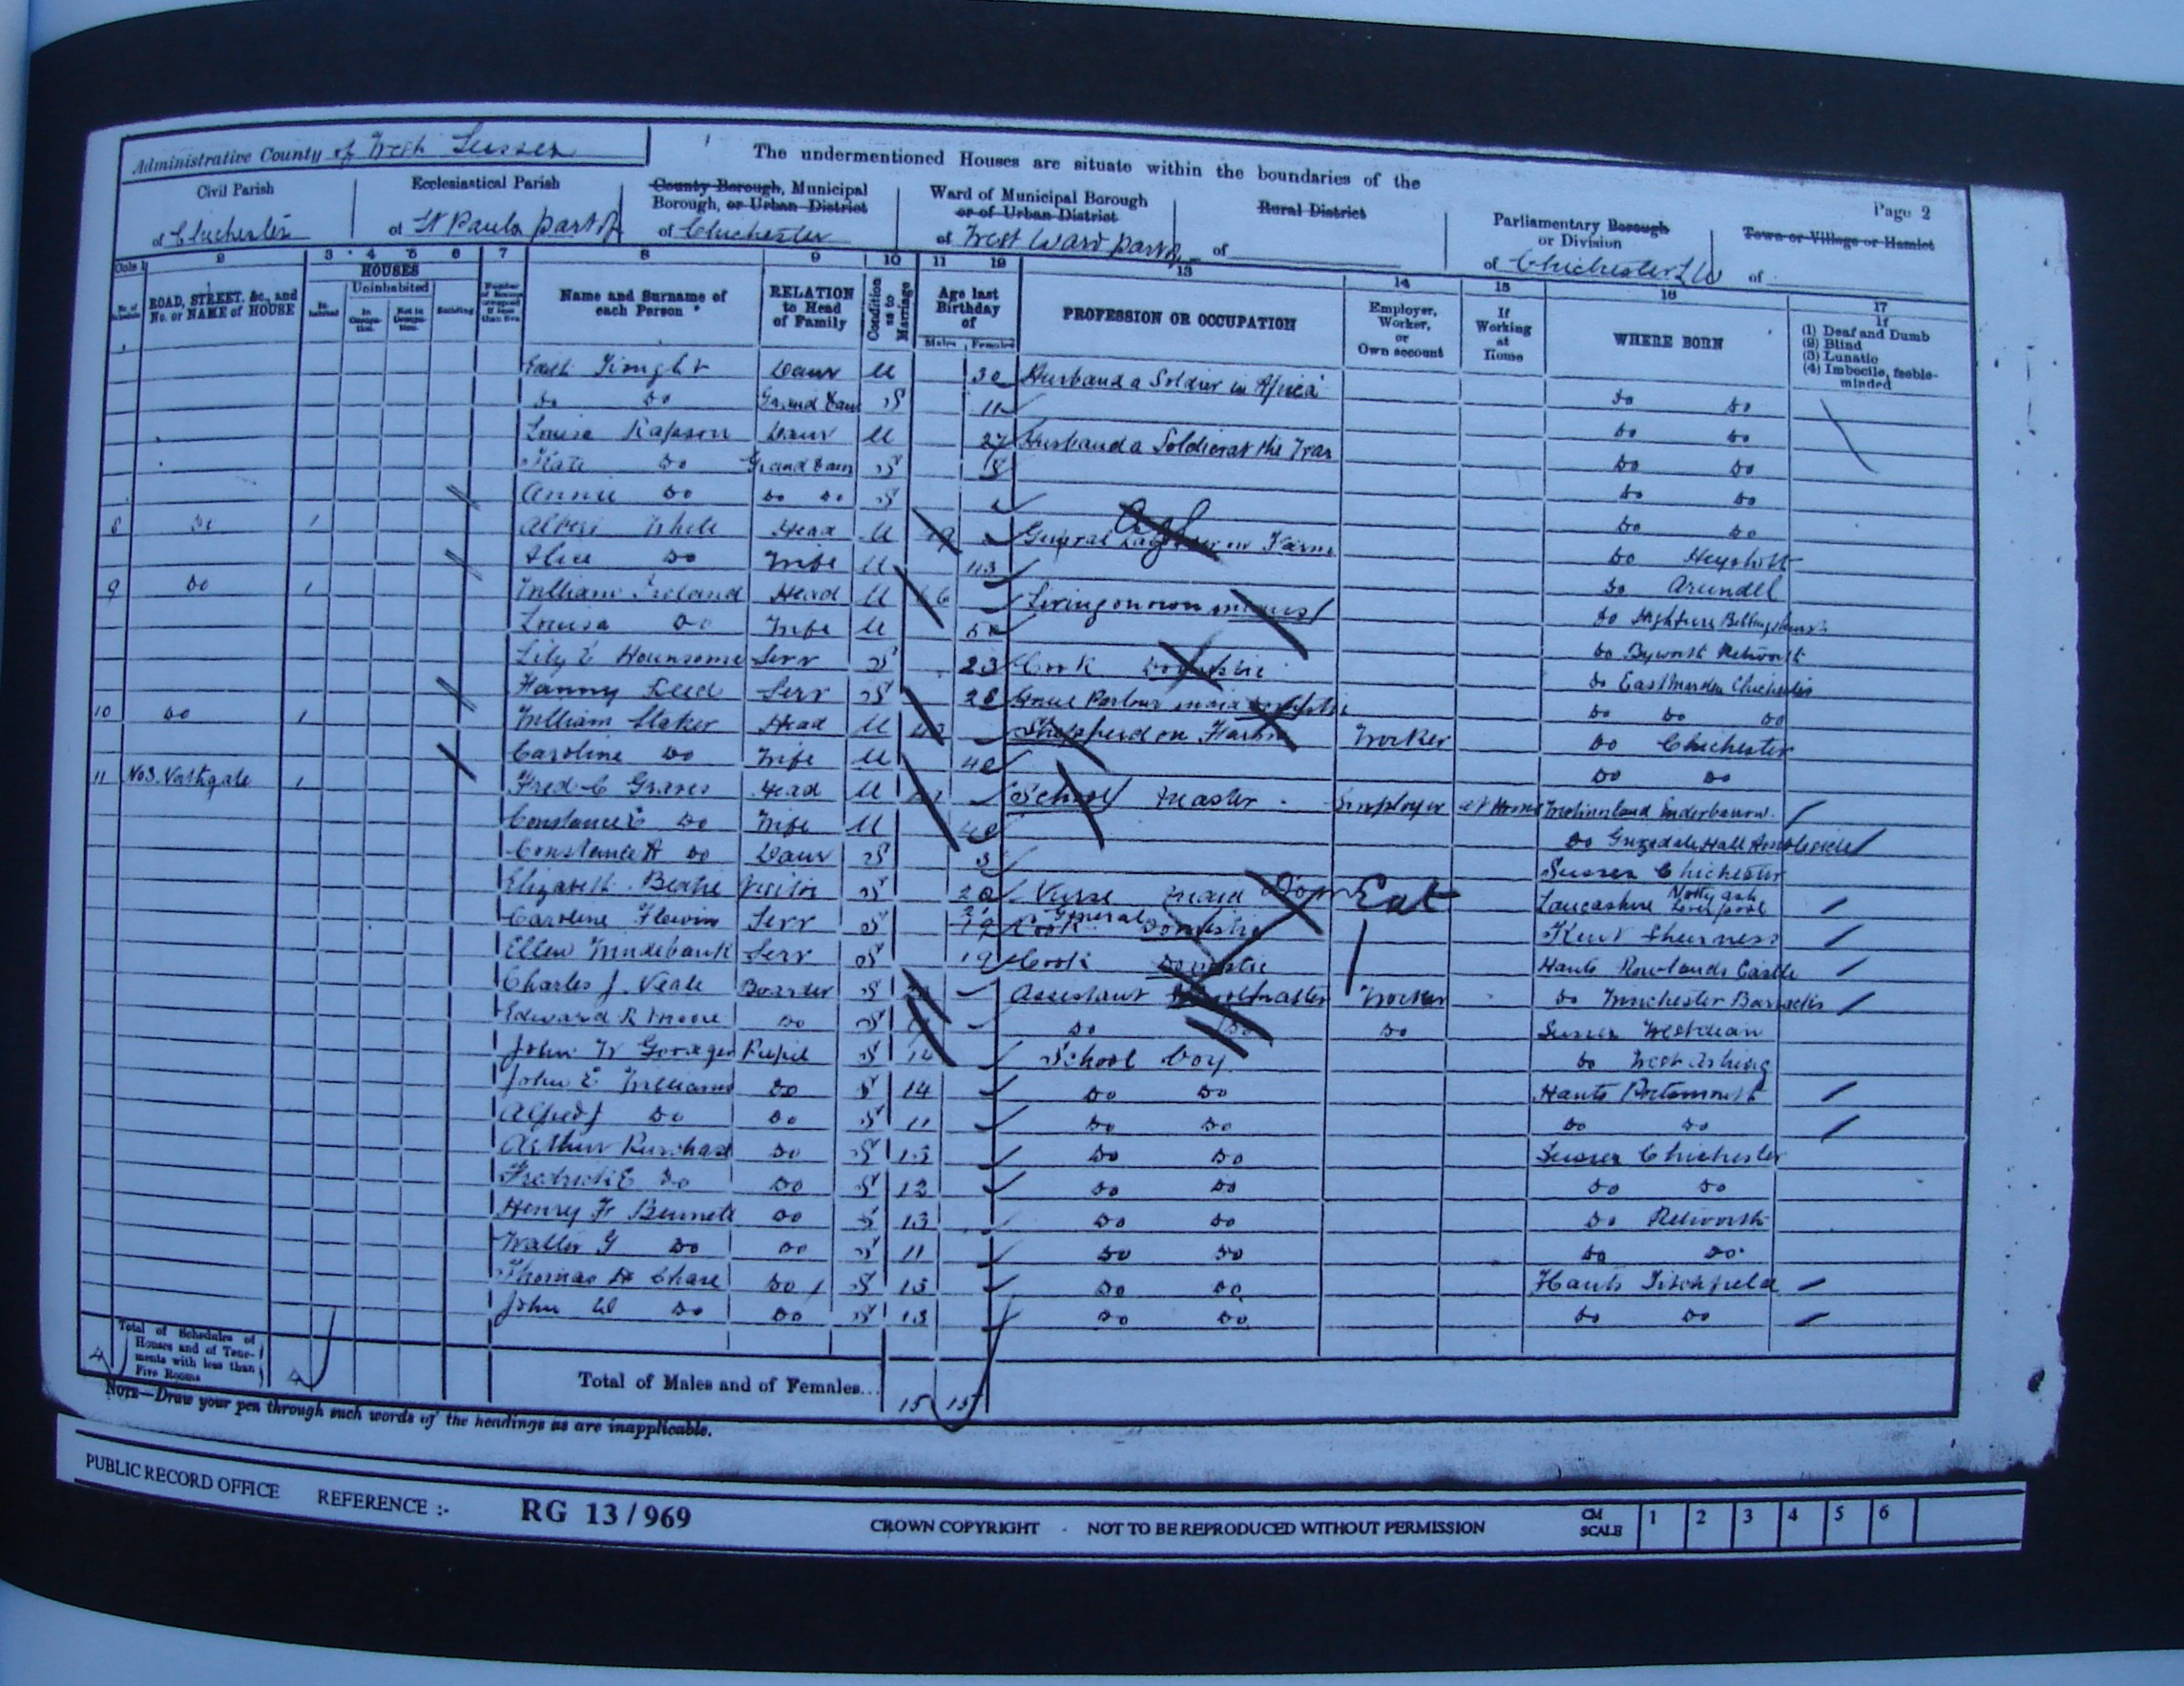 Administrative County of West Sussex
The undermentioned Houses are situate within the boundaries of the
Page 2
Civil Parish
of Chichester
Ecclesiastical Parish
of St Pauls part of
County Borough, Municipal
Borough, or Urban District
of Chichester
Ward of Municipal Borough
or of Urban District
of West Ward part of
Rural District
of
Parliamentary Borough
or Division
of Chichester S W
Town or Village or Hamlet
of
Cols 1 2 3 4 5 6 7 8 9 10 11 12 13 14 15 16 17
No. of Schedule
ROAD, STREET, &c., and
No. or NAME of HOUSE
HOUSES
Uninhabited
Building
Name and Surname of
each Person
RELATION
to Head
of Family
Condition
as to
Marriage
Age last
Birthday
of
Males Females
PROFESSION OR OCCUPATION
Employer,
Worker,
or
Own account
If
Working
at
Home
WHERE BORN
If
(1) Deaf and Dumb
(2) Blind
(3) Lunatic
(4) Imbecile, feeble-
minded
Daur M 30 Husband a Soldier in Africa Do Do
Do Do Grand Daur S 11 Do Do
Louisa Rapson Daur M 27 Husband a Soldier at the War Do Do
Kate Do Grand Daur S Do Do
Annie Do Do Do S Do Do
8 Do 1 Albert White Head M General on Farm Do Heyshott
Alice Do Wife M 43 Do Arundel
9 Do 1 William Ireland Head M 66 Living on own means Do Billingshurst
Louisa Do Wife M Do Byworth Petworth
Lily E Hounsome Serv S 23 Cook Domestic Do East Marden Chichester
Fanny Leed Serv S 28 House Parlour maid Domestic Do Do Do
10 Do 1 William Staker Head M Shepherd on Farm Worker Do Chichester
Caroline Do Wife M 40 Do Do
11 No 3. Northgate 1 Fred C Graves Head M School Master Employer at Home Westmorland Underbarrow
Constance E Do Wife M 40 Do Hall Ambleside
Constance A Do Daur S 3 Sussex Chichester
Elizabeth Beatie Visitor S 20 Nurse maid Dom Lancashire Notty ash Liverpool
Caroline Serv S General Domestic Kent Sheerness
Ellen Windebank Serv S 19 Cook Domestic Hants Rowlands Castle
Charles J. Veale Boarder S Assistant Schoolmaster Worker Do Winchester Barracks
Edward R Moore Do S Do Do Do Sussex Westdean
John W Pupil S 14 School boy Do West Ashling
John E Williams Do S 14 Do Do Hants Portsmouth
Alfred J Do Do S 11 Do Do Do Do
Arthur Purchase Do S 13 Do Do Sussex Chichester
Fredrick E Do Do S 12 Do Do Do Do
Henry F Bennett Do S 13 Do Do Do Petworth
Walter G Do Do S 11 Do Do Do Do
Thomas Chase Do S 15 Do Do Hants Titchfield
John W Do Do S 13 Do Do Do Do
4 Total of Schedules of
Houses and of Tene-
ments with less than
Five Rooms 4
Total of Males and of Females... 15 15
NOTE—Draw your pen through such words of the headings as are inapplicable.
PUBLIC RECORD OFFICE REFERENCE :- RG 13/969 CROWN COPYRIGHT - NOT TO BE REPRODUCED WITHOUT PERMISSION CM SCALE 1 2 3 4 5 6